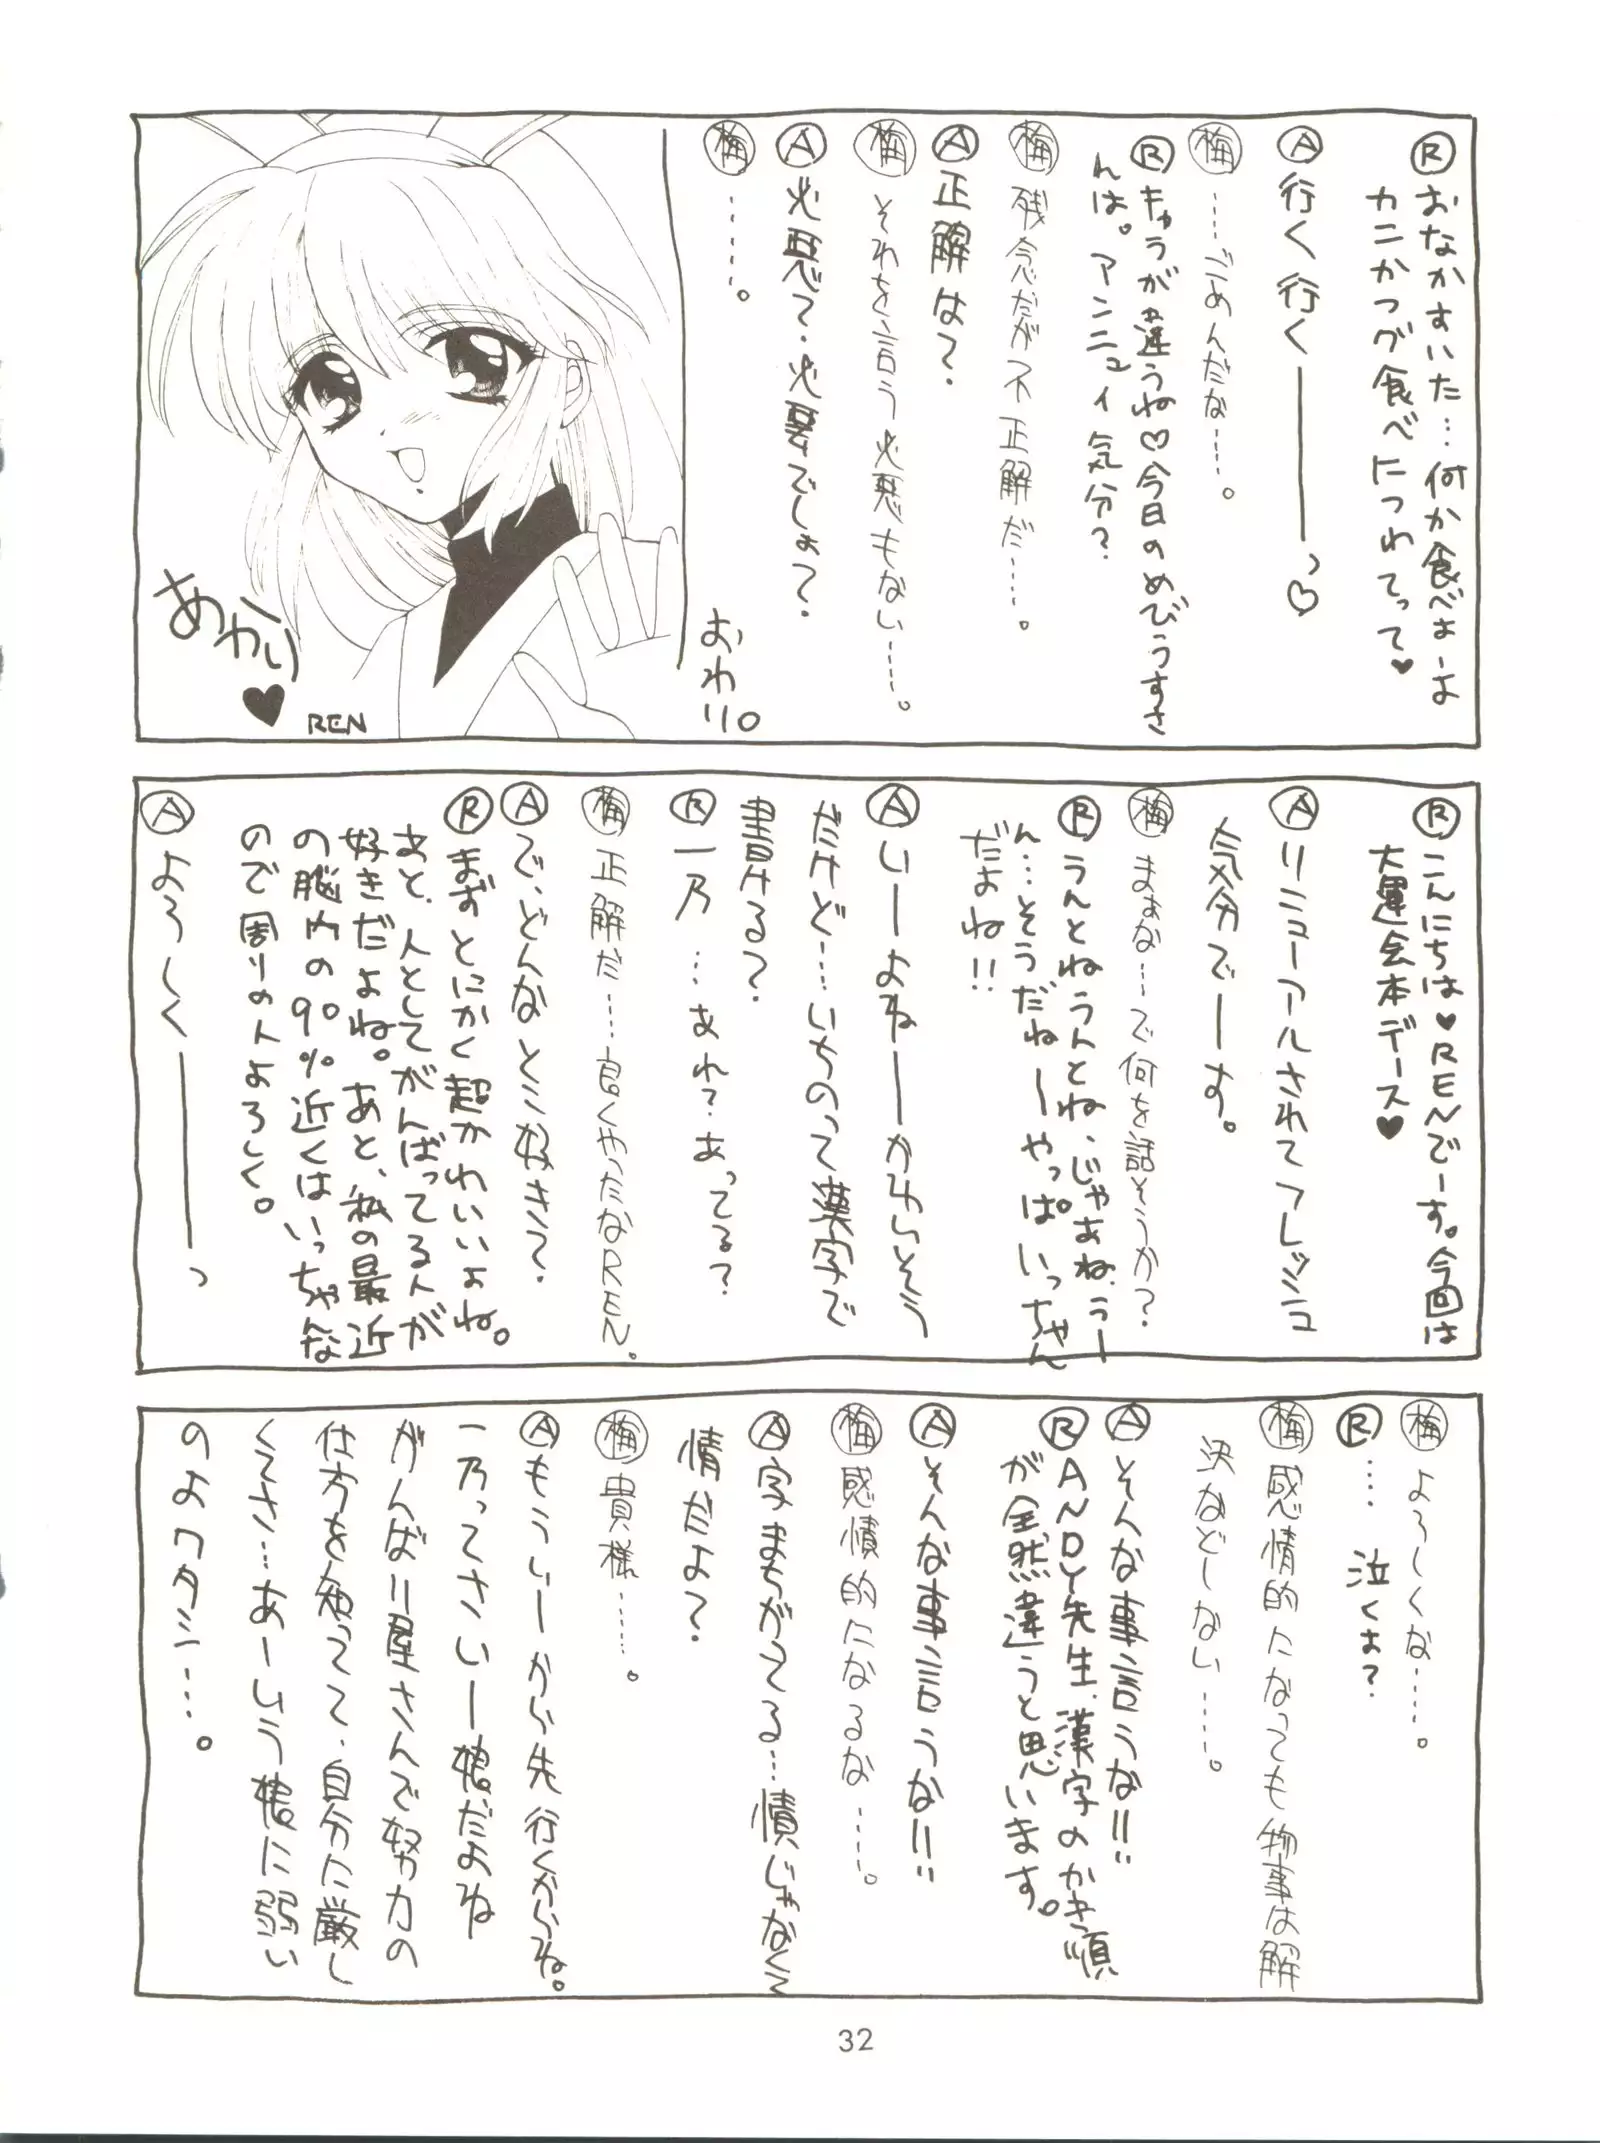 Ⓡおなかすいた…何か食べよーよ
カニかつグ食べにつれてって♥
Ⓐ行く行く――――っ♡
㊢梅……ごめんだな……。
Ⓡキャラが違うね♡今日のめびうすさ
んは。アンニュイ気分?
梅 残念だが不正解だ……。
Ⓐ正解は?
梅 それを言う必要もない……。
Ⓐ必要て・必要でしょ?
梅 ……。
おわり。
あかり♥
REN
Ⓡこんにちは♥RENでーす。今回は
大運会本デース♥
Ⓐリニューアルされてフレッシュ
気分でーす。
梅 まぁな……で何を話そうか?
Ⓡうんとねうんとね、じゃあね、うー
ん…そうだねーやっぱいっちゃん
だよね!!
Ⓐいーよねーかわいそう
だけど…いちのって漢字で
書ける?
Ⓡ一乃…あれ?あってる?
梅 正解だ……良くやったなREN。
Ⓐで、どんなとこ好き?
Ⓡまずとにかく超かわいいよね。
あと、人としてがんばってる人が
好きだよね。あと、私の最近
の脳内の90%近くはいっちゃんな
ので周りの人よろしく。
Ⓐよろしく――――っ
梅 よろしくな……。
Ⓡ…泣くよ?
梅 感情的になっても物事は解
決などしない……。
Ⓐそんな事言うな!!
ⓇANDY先生、漢字のかき順
が全然違うと思います。
Ⓐそんな事言うな!!
梅 感憤的になるな……。
Ⓐ字まちがてる…憤じゃなくて
情だよ?
梅 貴様……。
Ⓐもういーから先行くからね。
一乃ってさいー娘だよね
がんばり屋さんで努力の
仕方を知ってて、自分に厳し
くてさ…あーいう娘に弱い
のよワタシ…。
32